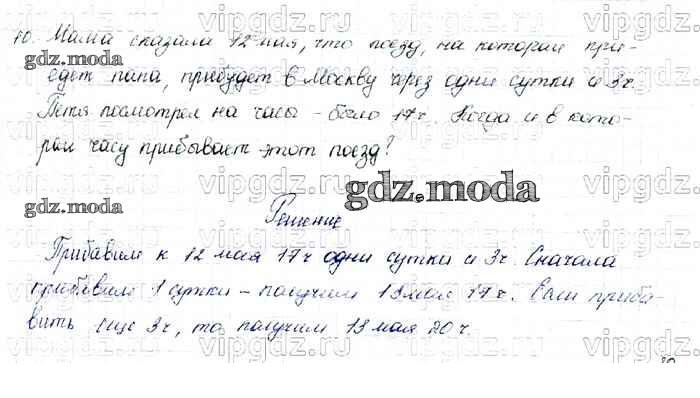 10. Мама сказала 12 мая, что поезд, на котором при-
едет папа, прибудет в Москву через одни сутки и 3ч.
Петя посмотрел на часы - было 17ч. Когда и в кото-
ром часу прибывает этот поезд?
Решение
Прибавим к 12 мая 17ч одни сутки и 3ч. Сначала
прибавим 1 сутки - получим 13 мая 17ч. Если приба-
вить еще 3ч, то получим 13 мая 20ч.
gdz.moda
gdz.moda
gdz.moda
gdz.moda
vipgdz.com